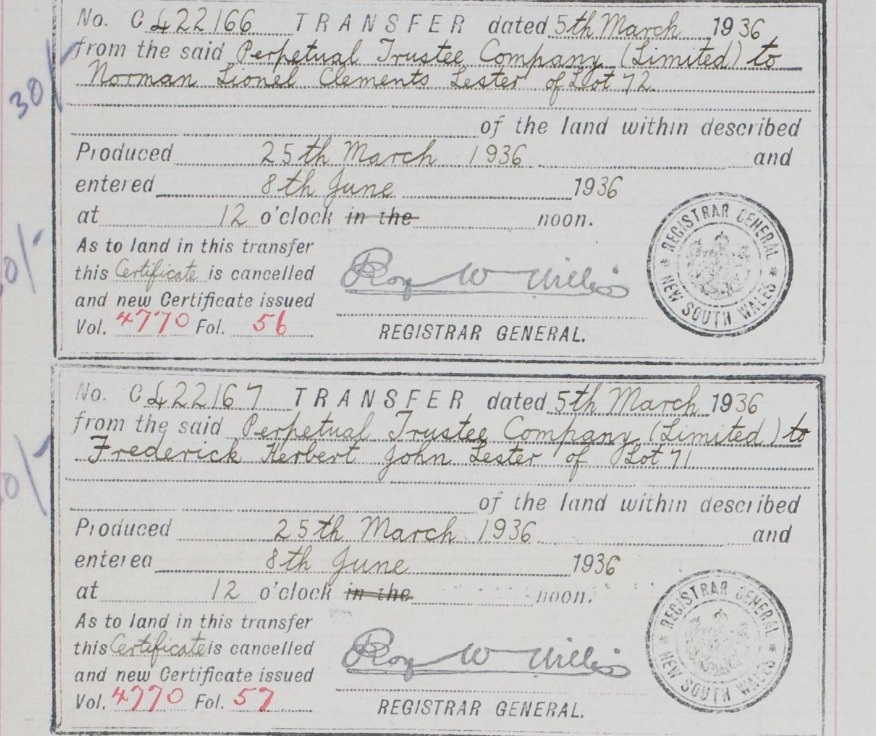 No. C422166 TRANSFER dated 5th March 1936
from the said Perpetual Trustee Company (Limited) to
Norman Lionel Clements Lester of Lot 72
30/-
of the land within described
Produced 25th March 1936 and
entered 8th June 1936
at 12 o'clock in the noon.
As to land in this transfer
this Certificate is cancelled
and new Certificate issued
Vol. 4770 Fol. 56
Roy W Willis
REGISTRAR GENERAL.
REGISTRAR GENERAL
NEW SOUTH WALES
No. C422167 TRANSFER dated 5th March 1936
from the said Perpetual Trustee Company (Limited) to
Frederick Herbert John Lester of Lot 71
of the land within described
Produced 25th March 1936 and
entered 8th June 1936
at 12 o'clock in the noon.
As to land in this transfer
this Certificate is cancelled
and new Certificate issued
Vol. 4770 Fol. 57
Roy W Willis
REGISTRAR GENERAL.
REGISTRAR GENERAL
NEW SOUTH WALES